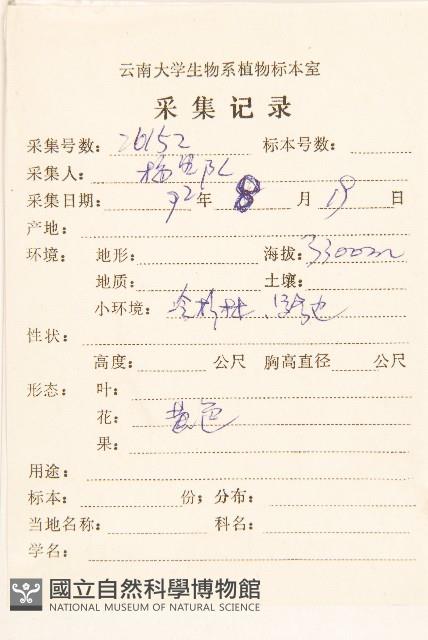 云南大学生物系植物标本室
采集记录
采集号数: 20152 标本号数:
采集人: 杨 队
采集日期: 92 年 8 月 19 日
产地:
环境: 地形: 海拔: 3300m
地质: 土壤:
小环境: 冷杉林
性状:
高度: 公尺 胸高直径 公尺
形态: 叶:
花: 黄色
果:
用途:
标本: 份; 分布:
当地名称: 科名:
学名:
國立自然科學博物館
NATIONAL MUSEUM OF NATURAL SCIENCE